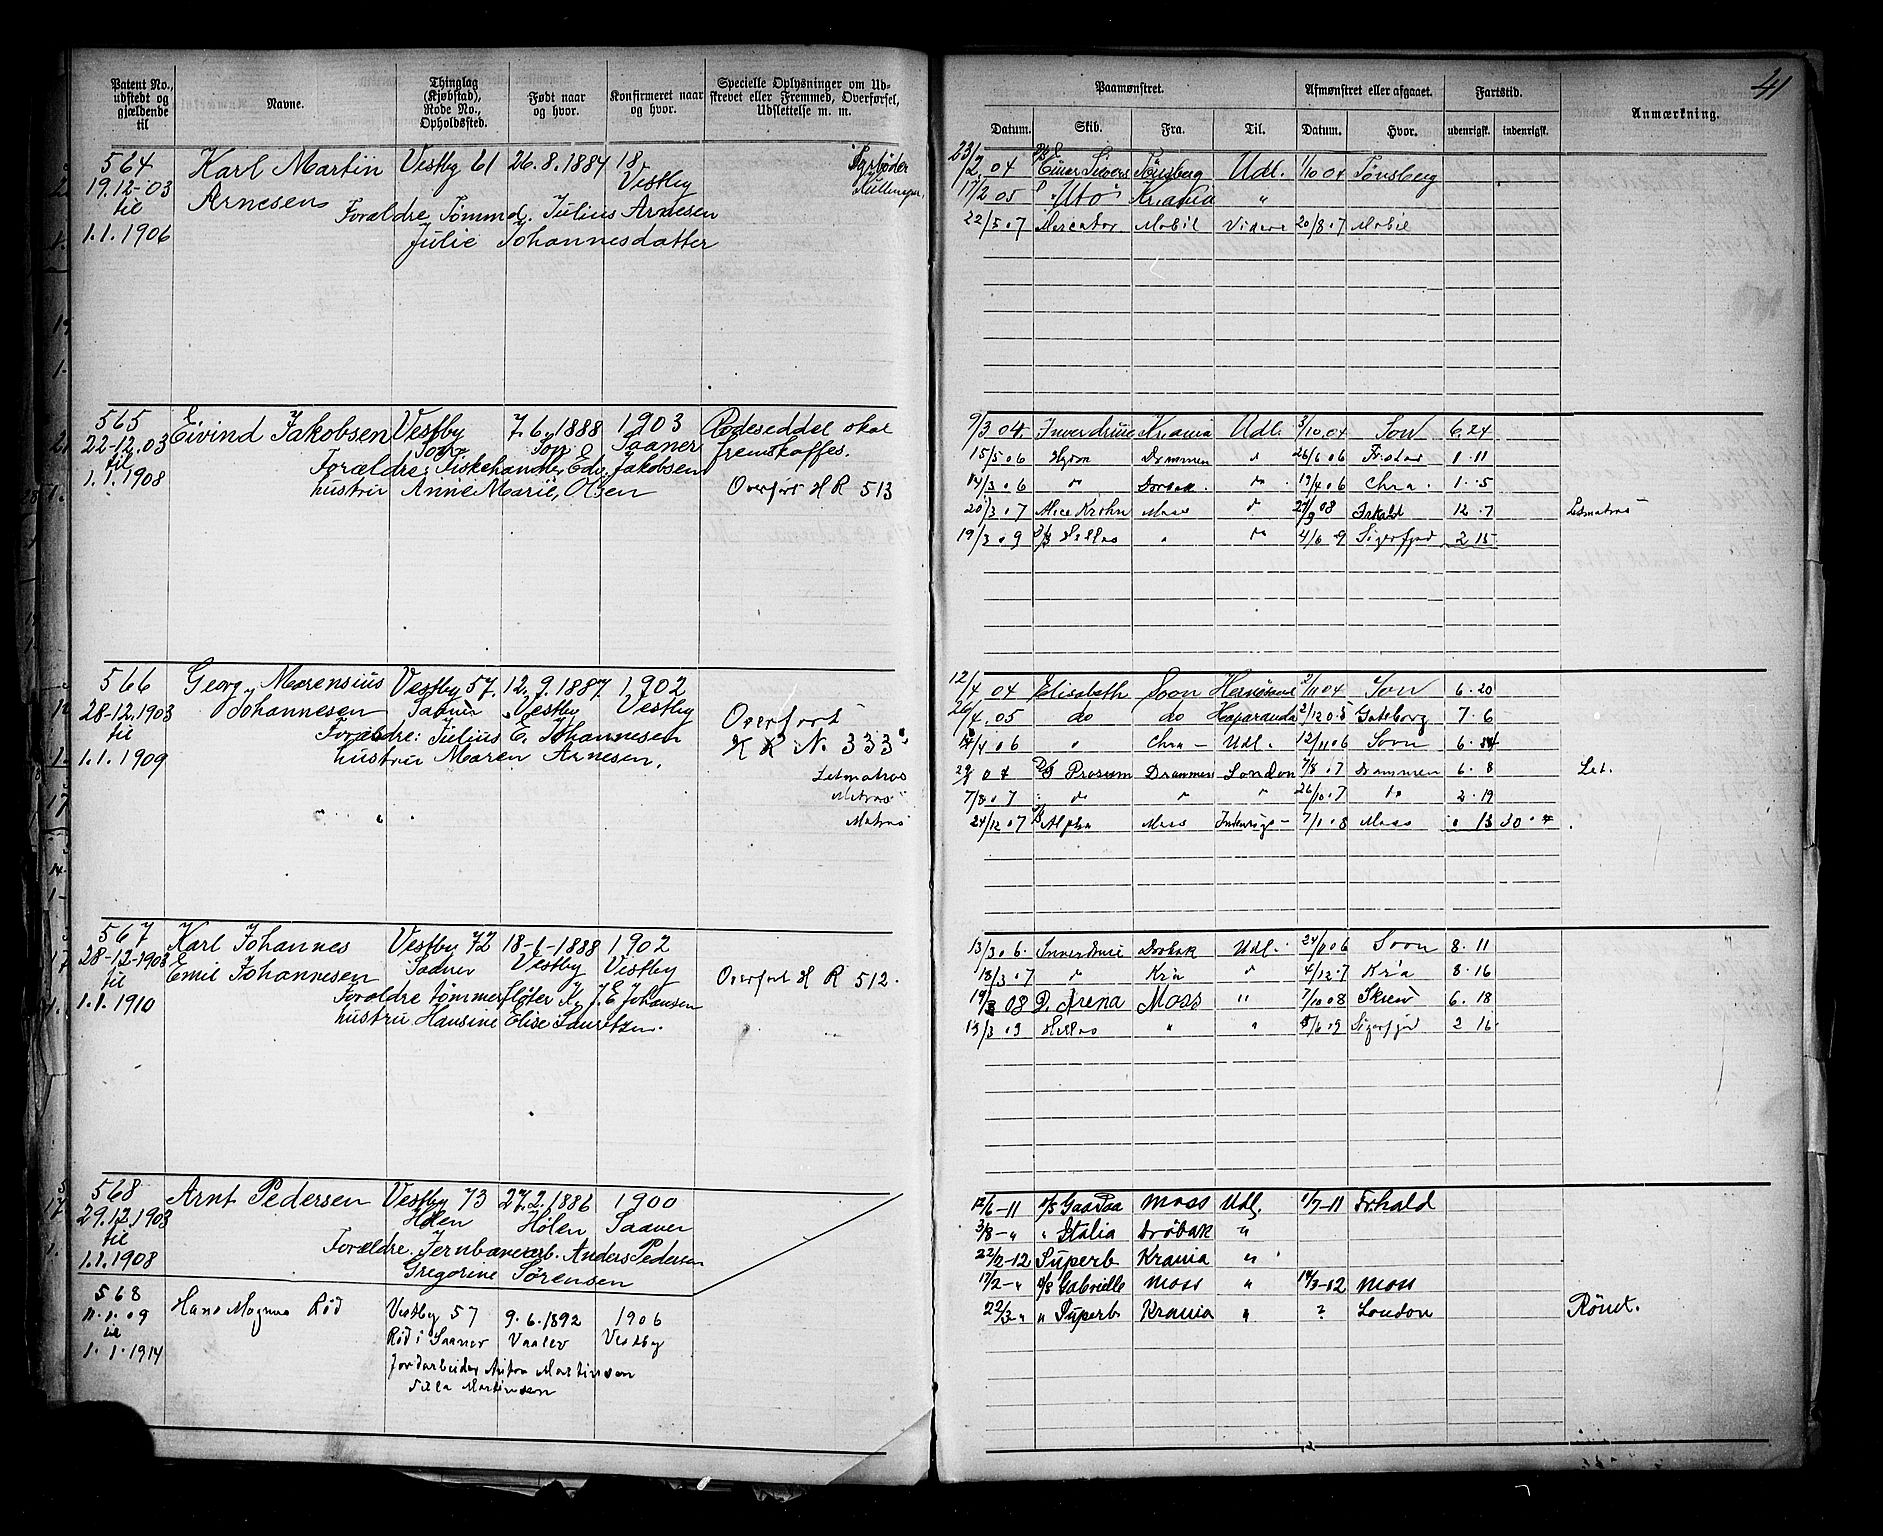 41
Patent No., udstedt og gjældende til
Navne.
Thinglag (Kjøbstad), Rode No., Opholdssted.
Født naar og hvor.
Konfirmeret naar og hvor.
Specielle Oplysninger om Udskrevet eller Fremmed, Overførsel, Udslettelse m. m.
Paamønstret.
Afmønstret eller afgaaet.
Fartstid.
Anmærkning.
Datum. Skib. Fra. Til. Datum. Hvor. udenrigsk. indenrigsk.
564 Karl Martin Vestby 61 26.8.1884 18 Fyrbøder
19.12-03 Arnesen Vestby
til Forældre Tømmd. Julius Arnesen
1.1.1906 Julie Johannesdatter
23/2 04 Tønsberg Udl. 1/10 04 Tønsberg
17/2 05 "Uto" Krania "
22/5 07 Mercator Mobil 20/8 07 Mobil
565 Eivind Jakobsen Vestby 7.6.1888 1903 Rodeseddel skal
22-12.03 Son Son Saaner fremskaffes.
til Forældre: Fiskehandler Edv. Jakobsen
1.1.1908 hustru Anne Marie Olsen Overført H R 513
9/3 04 Krania Udl. 3/10 04 Son 6.24
15/5 06 Drammen " 26/6 06 1.11
14/3 06 " 19/4 06 Chra. 1.5
20/3 07 Alice Krohn Moss " 08 12.7 Letmatros
19/3 09 Hellas " " 4/6 09 2 15
566 Georg Marensius Vestby 57. 12.9.1887 1902
28-12.1903 Johannesen Saaner Vestby Vestby Overført
til Forældre: Julius E. Johannesen N. 333
1.1.1909 hustru Maren Arnesen.
Letmatros
Matros
Matros
12/4 04 Elisabeth Soon 2/11 04 Son 6.20
26/4 05 do do Haparanda 2/12 05 Gøteborg 7.6
4/4 06 " Chra - Udl. 12/11 06 Soon 6.
Prosum Drammen London 7/8 07 Drammen 6.8 Let.
7/8 07 do " " 26/10 07 do 2.19
24/12 07 Alpha Moss 7/1 08 Moss 13
567 Karl Johannes Vestby 72 18-6-1888 1902
28-12-1903 Emil Johannesen Saaner Vestby Vestby Overført H R 512.
til Forældre tømmerfløter J. E. Johansen
1.1.1910 hustru Hansine Elise Lauritzen.
13/3 06 Drøbak Udl. 06 Soon 8.11
18/3 07 " Kria " 4/12 07 Kria 8.16
08 D. Irena Moss " 7/10 08 Skien 6.18
13/3 09 Hellas " " 09 2 16
568 Arnt Pedersen Vestby 73 27.2.1886 1900
29.12.1903 Hølen Hølen Saaner
til Forældre. Jernbanearb. Anders Pedersen
1.1.1908 Gregorine Sørensen
568 Hans Magnus Rød Vestby 57 9.6.1892 1906
09 Rød i Saaner Vaaler Vestby
til Jordarbeider Anton Martinsen
1.1.1914 Martinsen
12/6-11 GaaPaa Moss Udl. 1/7-11 Frhald
3/8-" " Italia Drøbak "
22/2-12 Superb Krania "
17/2-" Gabrielle Moss " 14/3-12 Moss
22/3-" " Superb Krania " ? London Rømt.